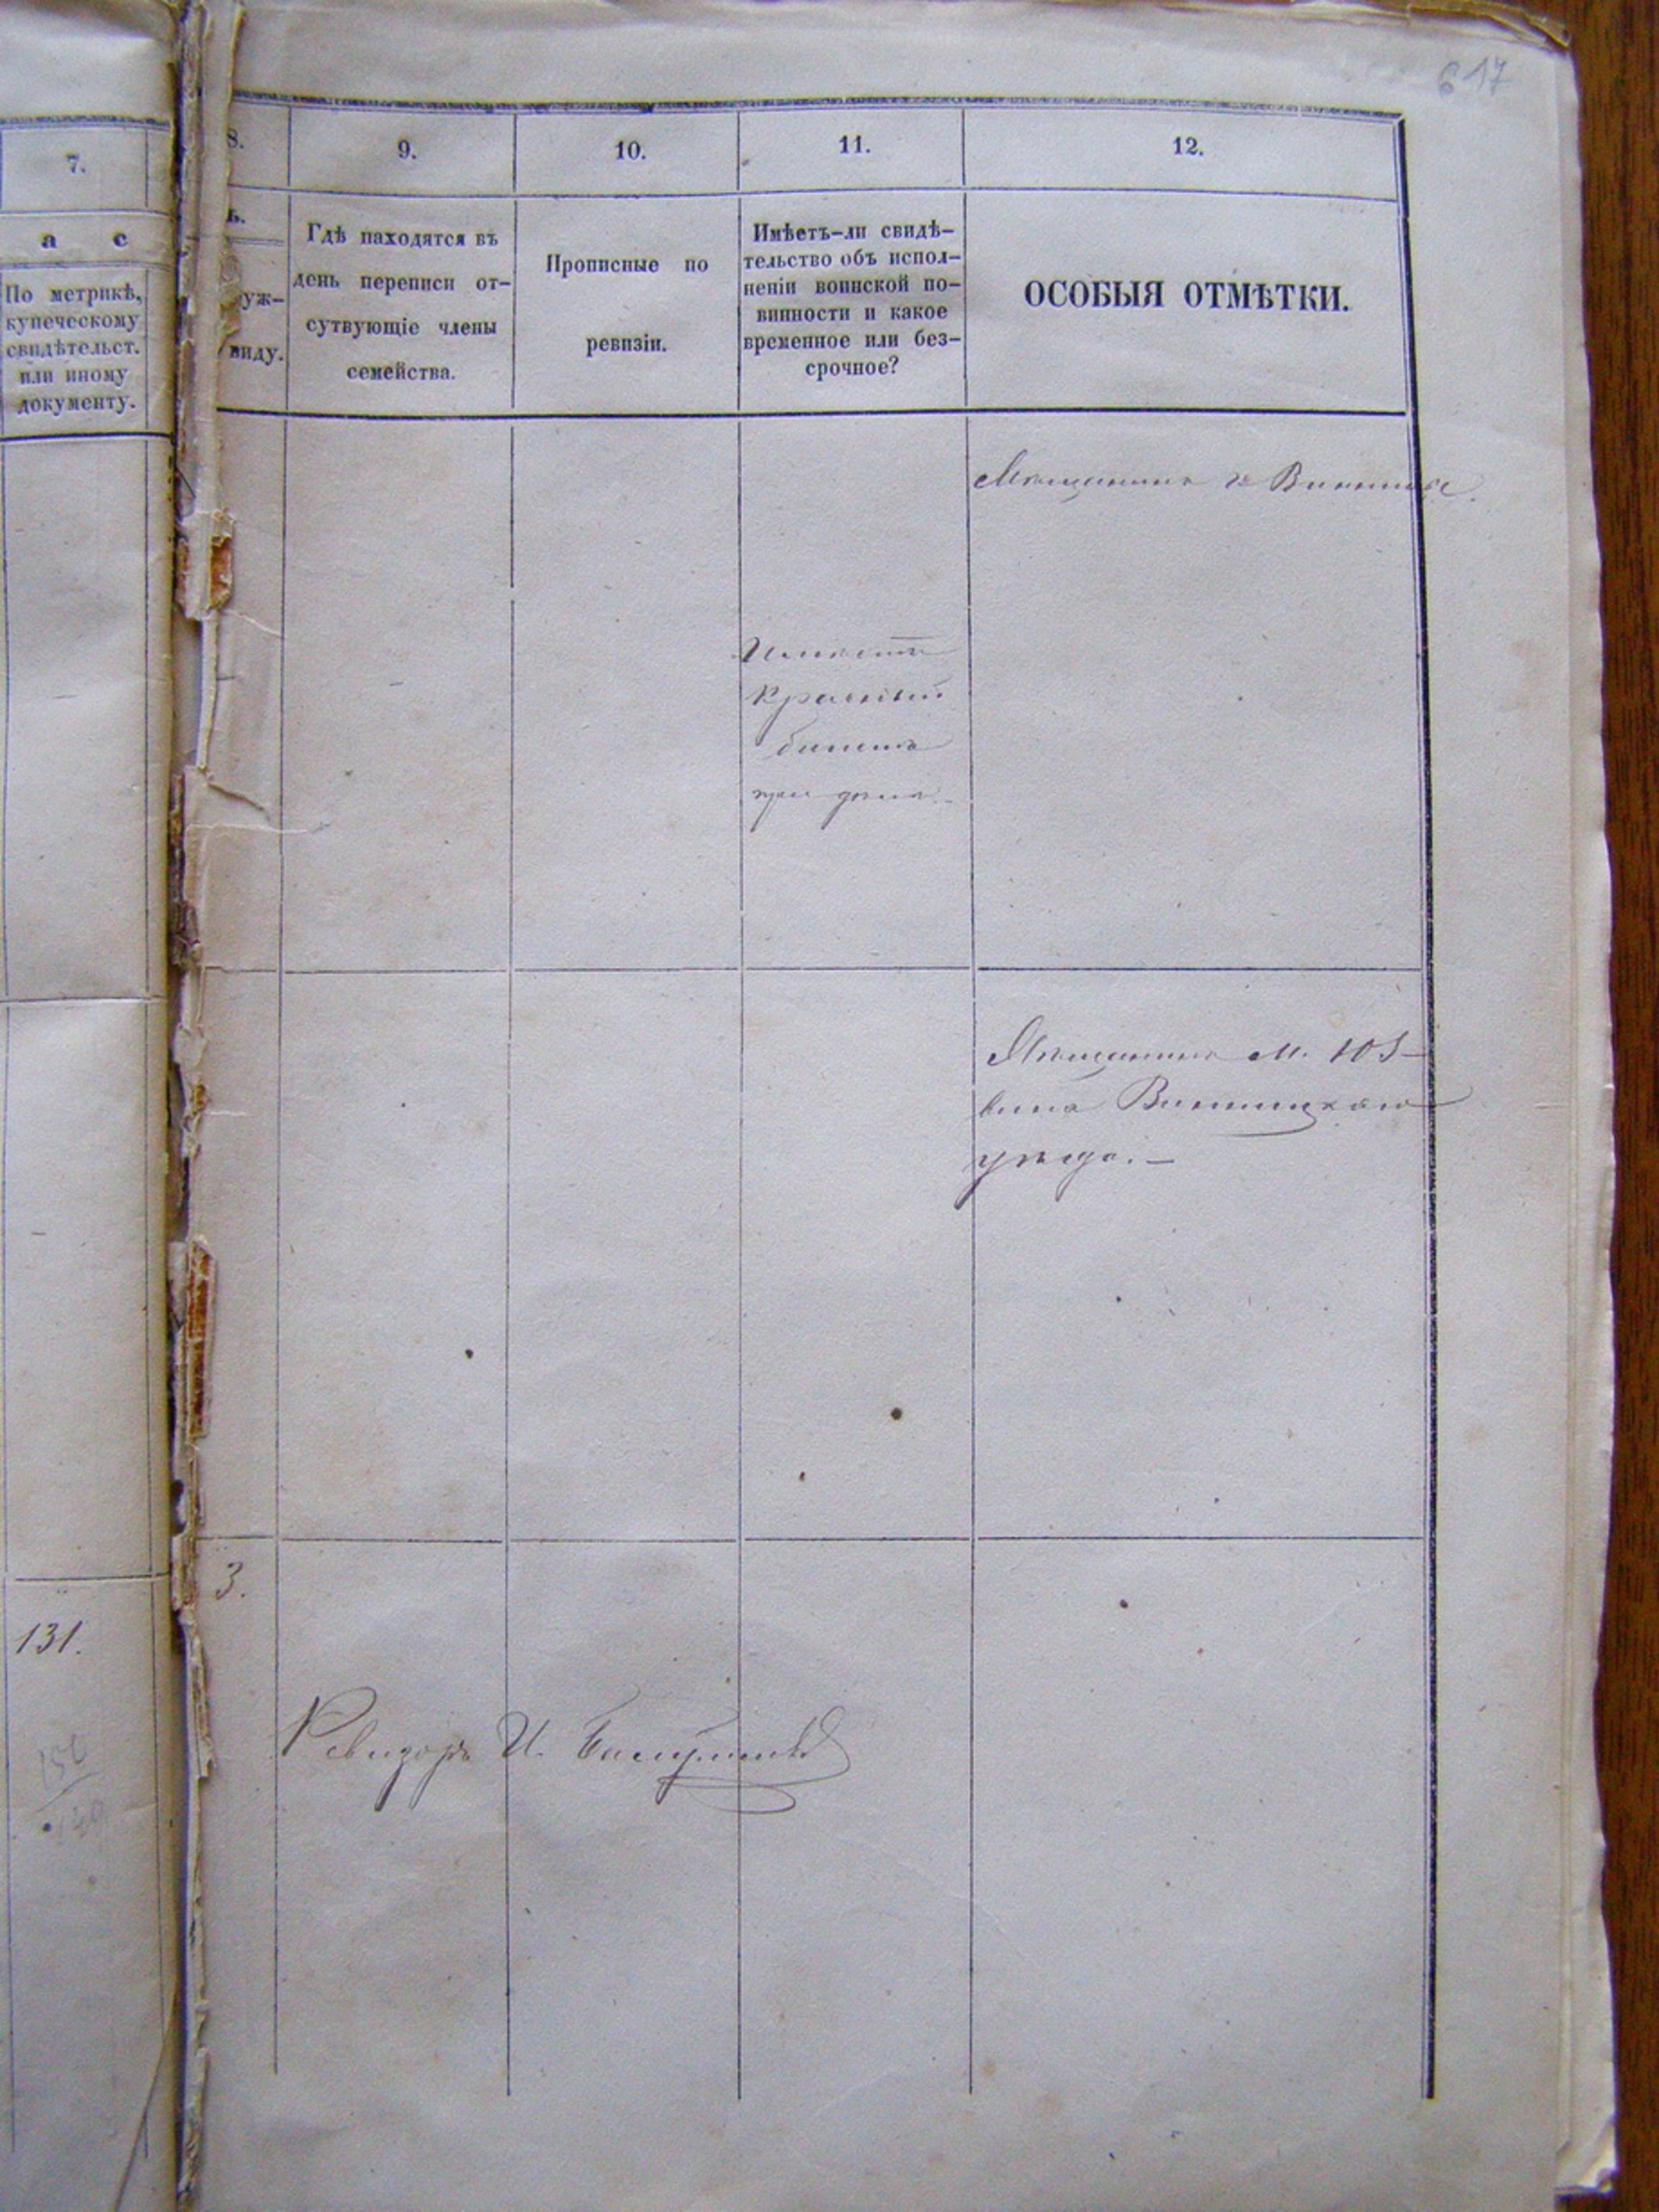 617
7.
8.
9.
10.
11.
12.
а с
ь.
По метрикѣ,
купеческому
свидѣтельст.
или иному
документу.
уж-
виду.
Гдѣ находятся въ
день переписи от-
сутвующіе члены
семейства.
Прописные по
ревизіи.
Имѣетъ-ли свидѣ-
тельство объ испол-
неніи воинской по-
винности и какое
временное или без-
срочное?
ОСОБЫЯ ОТМѢТКИ.
Мѣщанинъ г. Винницы.
Имѣетъ
красный
билетъ
при
Мѣщанинъ м. Юз-
вина Винницкаго
уѣзда. —
131.
3.
Ревизоръ И.